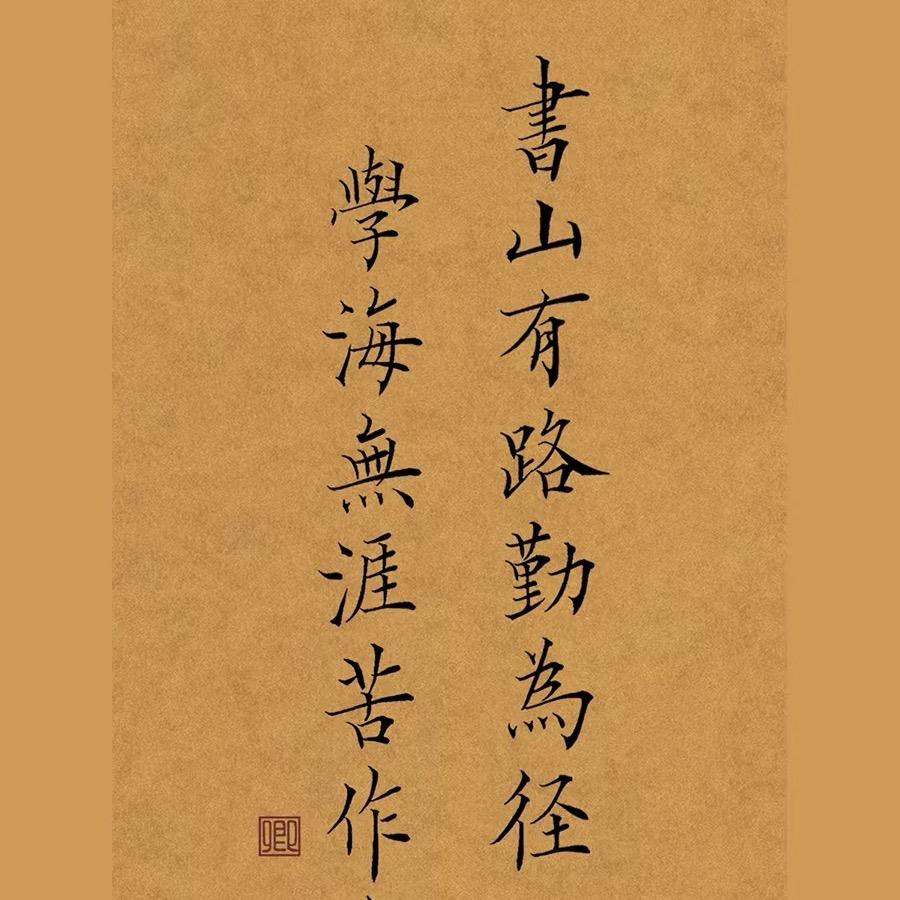 書山有路勤為径
學海無涯苦作